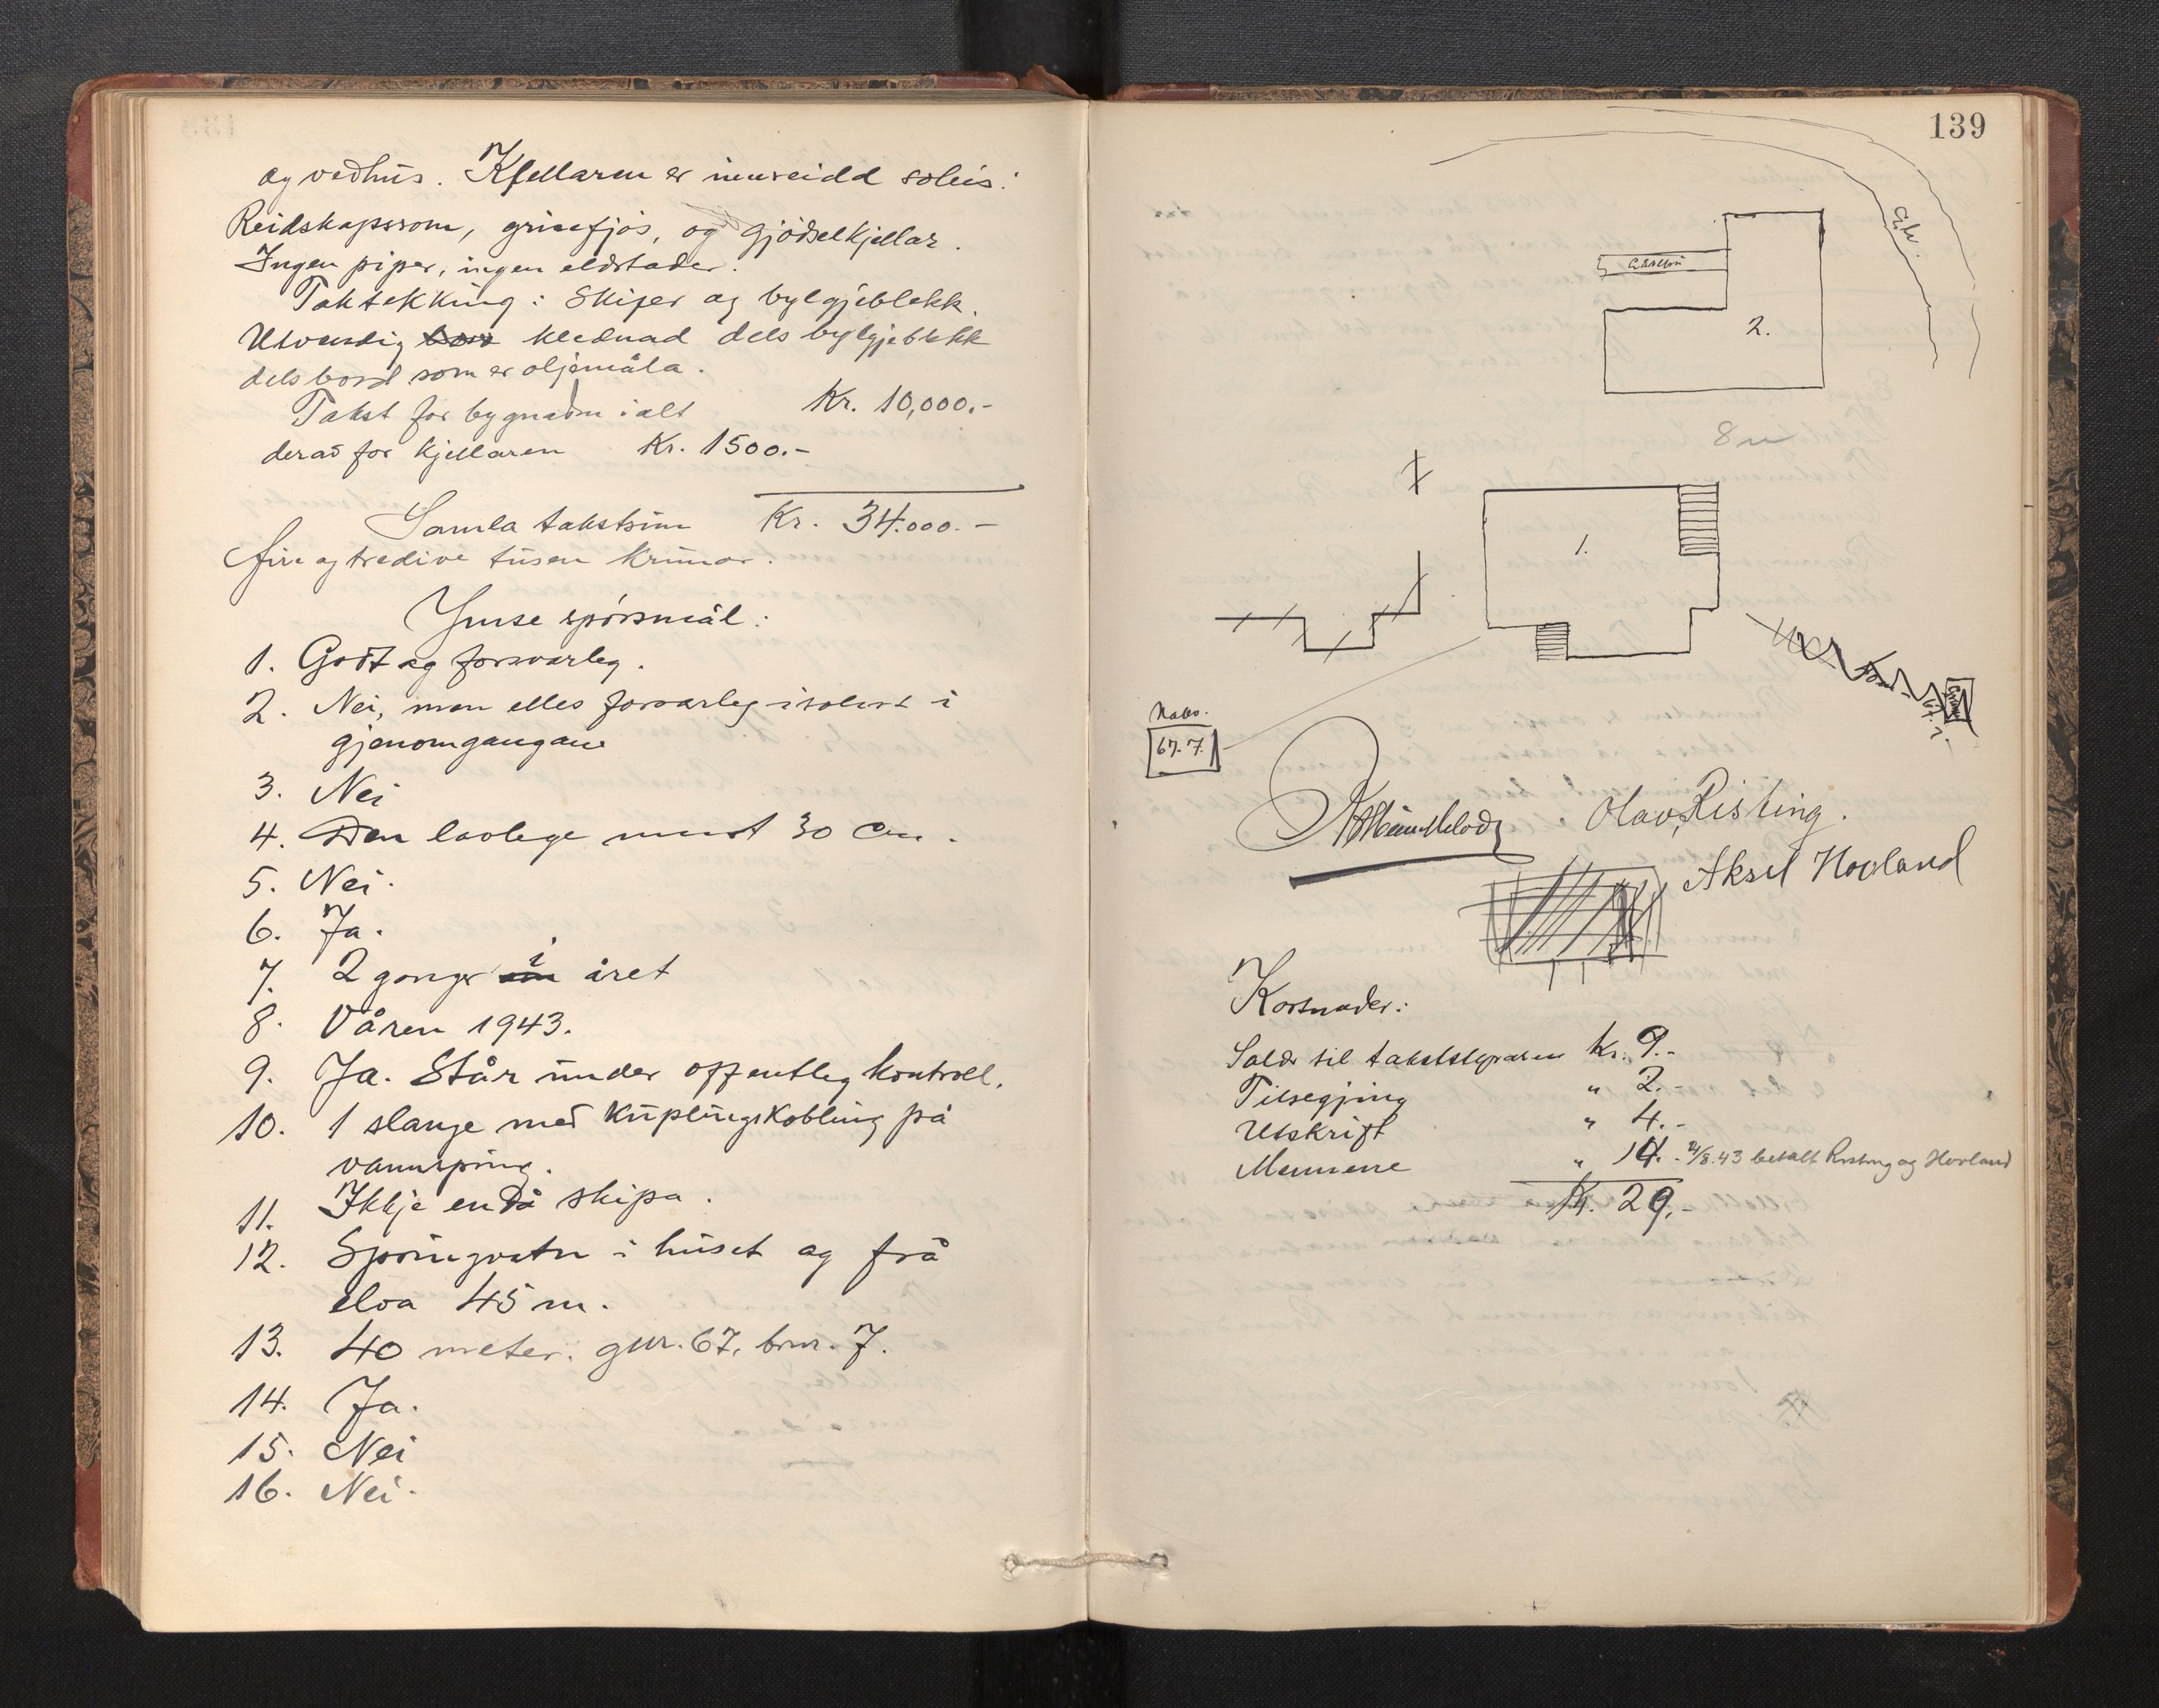 og vedhus. Kjellaren er innreidd soleis:
Reidskapsrom, grisefjós, og gjödselkjellar.
Ingen piper, ingen eldstader.
Taktekking: Skifer og bylgjeblekk.
Utvendig klednad dels bylgjeblekk
dels bord som er oljemåla.
Takst for bygnaden i alt Kr. 10,000.-
derav for kjellaren Kr. 1500.-
Samla takstsum Kr. 34.000.-
fire og tredive tusen kronor.
Ymse spörsmål:
1. Godt og forsvarleg.
2. Nei, men elles forsvarleg isolert i
gjenomgangane
3. Nei
4. Den lovlege minst 30 cm.
5. Nei.
6. Ja.
7. 2 gonger i året
8. Våren 1943.
9. Ja. Står under offentleg kontroll.
10. 1 slange med kuplingskobling på
vannspring.
11. Ikkje endå skipa.
12. Springvatn i huset og frå
elva 45 m.
13. 40 meter. gnr. 67, bnr. 7.
14. Ja.
15. Nei
16. Nei.
139
Elv.
2.
8 m
1.
Nabo.
67.7.
Olav Risting.
Aksel Hovland
Kostnader:
Salær til takststyraren Kr. 9.-
Tilsegjing " 2.-
Utskrift " 4.-
Mennene " 14.- 21/8.43 betalt Risting og Hovland
Kr. 29.-